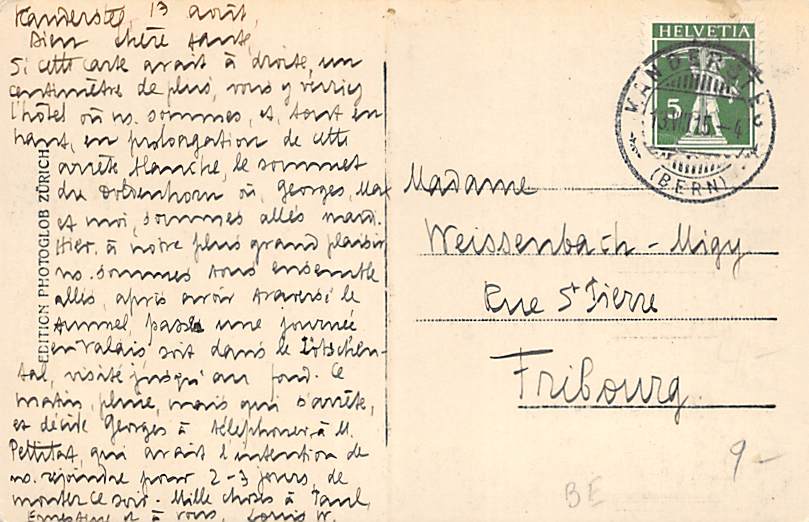 Kandersteg, 13 août,
Bien chère tante,
Si cette carte avait à droite, un
centimètre de plus, vous y verriez
l'hôtel où ns. sommes, et, tout en
haut, en prolongation de cette
arrête blanche, le sommet
du Doldenhorn où, Georges, Max
et moi, sommes allés mard.
Hier, à notre plus grand plaisir,
ns. sommes tous ensemble
allés, après avoir traversé le
tunnel, passer une journée
en Valais, soit dans le Lötschen-
tal, visité jusqu'au fond. Ce
matin, pluie, mais qui s'arrête,
et décide Georges à téléphoner à M.
Pettitat, qui avait l'intention de
ns. rejoindre pour 2-3 jours, de
monter ce soir. Mille choses à Paul,
Ernestine et à vous, Louis W.
EDITION PHOTOGLOB ZÜRICH
HELVETIA
5
KANDERSTEG
(BERN)
Madame
Weissenbach-Migy
Rue St Pierre
Fribourg.
4-
9-
BE